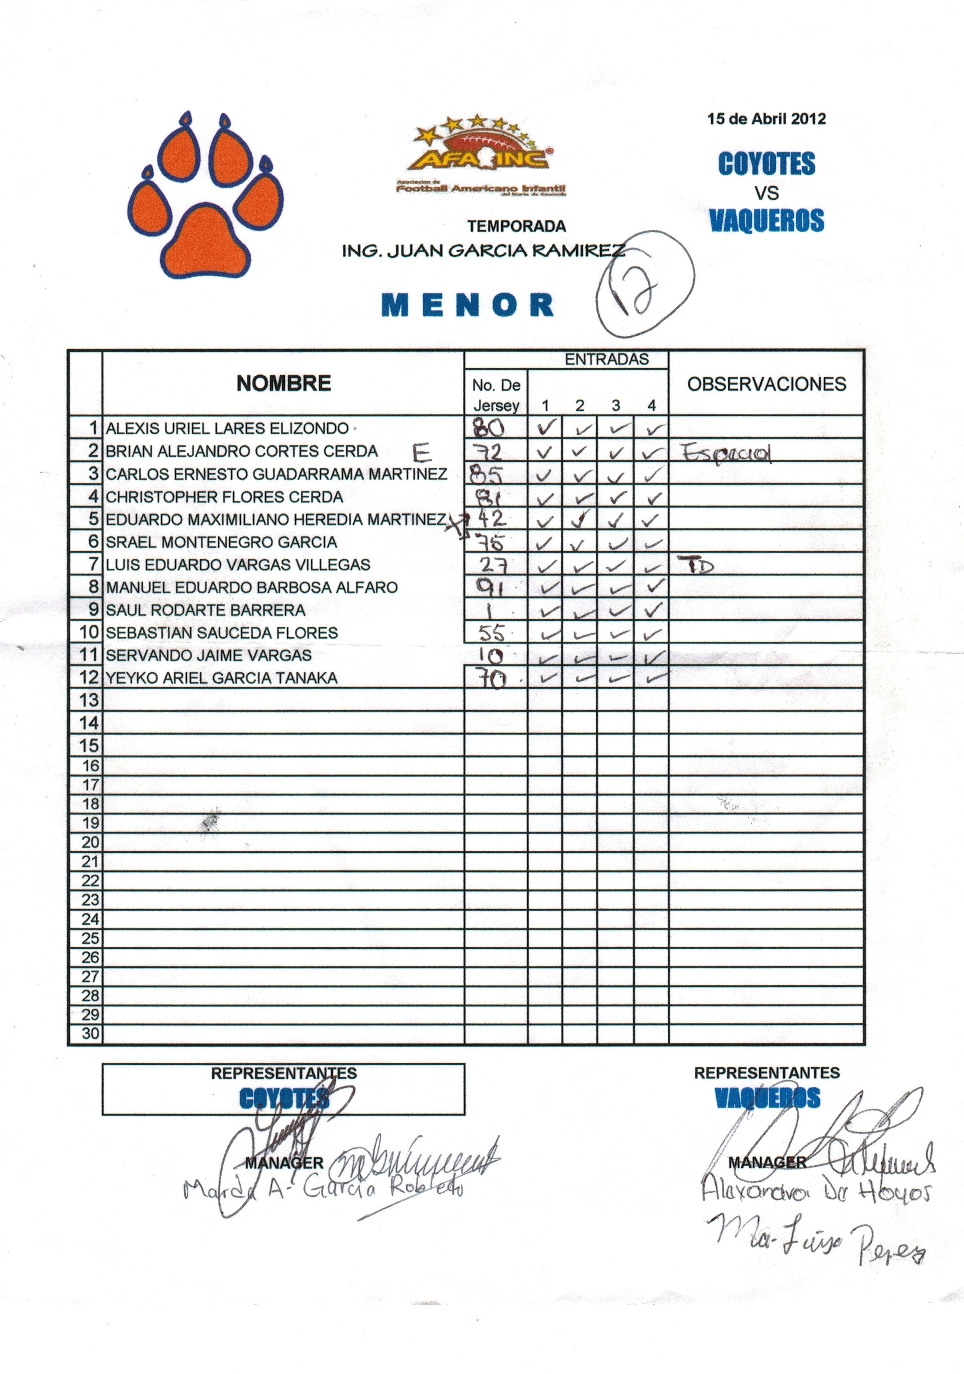 15 de Abril 2012
COYOTES
VS
VAQUEROS
AFA INC ®
Asociacion de
Football Americano Infantil
del Norte de Coahuila
TEMPORADA
ING. JUAN GARCIA RAMIREZ
12
MENOR
NOMBRE No. De Jersey ENTRADAS 1 2 3 4 OBSERVACIONES
1 ALEXIS URIEL LARES ELIZONDO 80 ✓ ✓ ✓ ✓
2 BRIAN ALEJANDRO CORTES CERDA E 72 ✓ ✓ ✓ ✓ Especial
3 CARLOS ERNESTO GUADARRAMA MARTINEZ 85 ✓ ✓ ✓ ✓
4 CHRISTOPHER FLORES CERDA 81 ✓ ✓ ✓ ✓
5 EDUARDO MAXIMILIANO HEREDIA MARTINEZ 42 ✓ ✓ ✓ ✓
6 SRAEL MONTENEGRO GARCIA 75 ✓ ✓ ✓ ✓
7 LUIS EDUARDO VARGAS VILLEGAS 27 ✓ ✓ ✓ ✓ TD
8 MANUEL EDUARDO BARBOSA ALFARO 91 ✓ ✓ ✓ ✓
9 SAUL RODARTE BARRERA 1 ✓ ✓ ✓ ✓
10 SEBASTIAN SAUCEDA FLORES 55 ✓ ✓ ✓ ✓
11 SERVANDO JAIME VARGAS 10 ✓ ✓ ✓ ✓
12 YEYKO ARIEL GARCIA TANAKA 70 ✓ ✓ ✓ ✓
13
14
15
16
17
18
19
20
21
22
23
24
25
26
27
28
29
30
REPRESENTANTES
COYOTES
MANAGER
A. Garcia Robledo
REPRESENTANTES
VAQUEROS
MANAGER
Alexandra De Hoyos
Ma. Luisa Perez